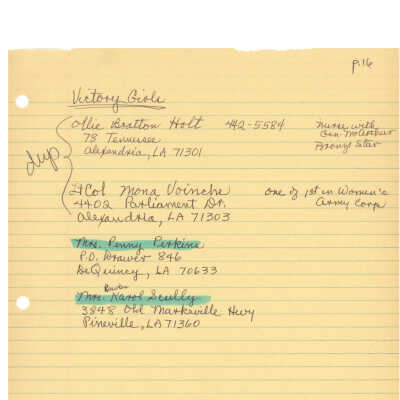 p.16
Victory Girls
dup
Ollie Bratton Holt 442-5584 Nurse with
78 Tennessee Gen McArthur
Alexandria, LA 71301 Bronze Star
Lt Col Mona Voinche one of 1st in Women's
4402 Parliament Dr. Army Corp
Alexandria, LA 71303
Mrs. Penny Perkins
P.O. Drawer 846
DeQuincy, LA 70633
Mrs. Karol Scully
3848 Old Marksville Hwy
Pineville, LA 71360